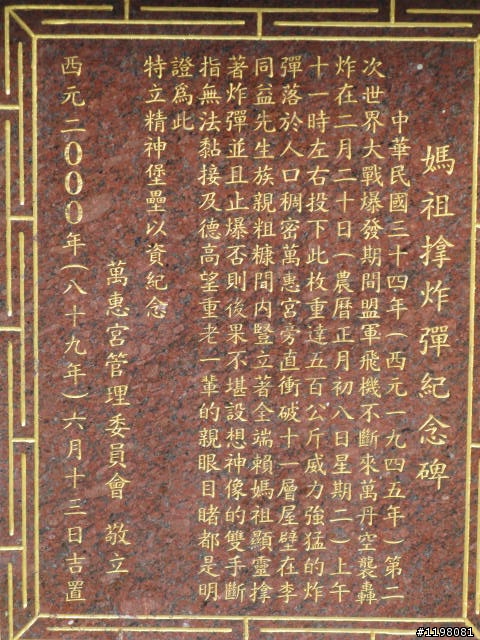 媽祖撑炸彈紀念碑
中華民國三十四年(西元一九四五年)第二
次世界大戰爆發期間盟軍飛機不斷來萬丹空襲轟
炸在二月二十日(農曆正月初八日星期二)上午
十一時左右投下此枚重達五百公斤威力強猛的炸
彈落於人口稠密萬惠宮旁直衝破十一層屋壁在李
同益先生族親粗糠間內豎立著全端賴媽祖顯靈撑
著炸彈並且止爆否則後果不堪設想神像的雙手斷
指無法黏接及德高望重老一輩的親眼目睹都是明
證為此
特立精神堡壘以資紀念
萬惠宮管理委員會 敬立
西元二000年(八十九年)六月十三日吉置
#1198081